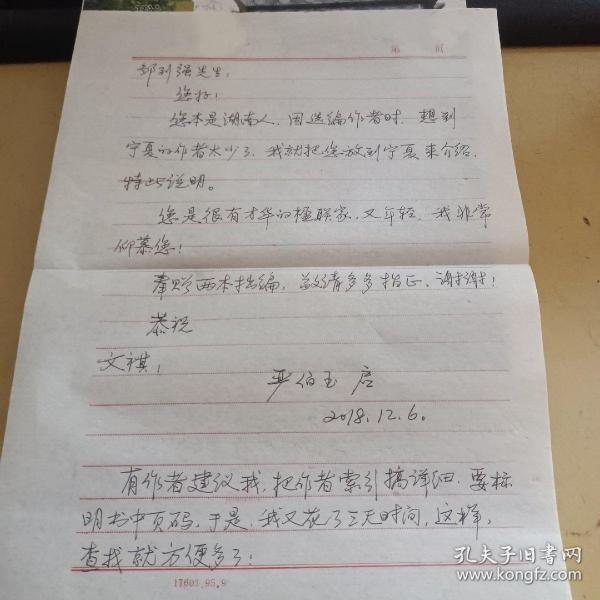 第 页
邹列强先生:
您好!
您本是湖南人,因选编作者时,想到
宁夏的作者太少了,我就把您放到宁夏来介绍,
特此说明。
您是很有才华的楹联家,又年轻,我非常
仰慕您!
奉赠两本拙编,敬请多多指正,谢谢!
恭祝
文祺!
严伯玉 启
2018.12.6.
有作者建议我,把作者索引搞详细,要标
明书中页码,于是,我又花了三天时间,这样,
查找就方便多了!
17603.95.9
孔夫子旧书网
www.kongfz.com